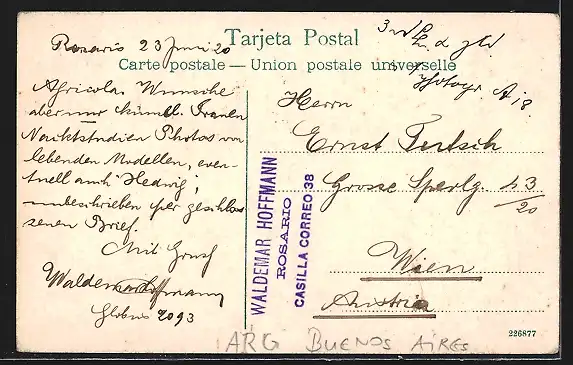 Rosario 23 Juni 20
Tarjeta Postal
Carte postale — Union postale universelle
Africola. Wünsche
aber nur künstl. Frauen
Nacktstudien Photos von
lebenden Modellen, even-
tuell auch "Hedwig",
unbeschrieben per geschlos
senen Brief.
Mit Gruss
Waldemar Hoffmann
Globus 2093
WALDEMAR HOFFMANN
ROSARIO
CASILLA CORREO 38
Herrn
Ernst
Grosse Sperlg.
Wien
Austria
226877
ARG BUENOS AIRES